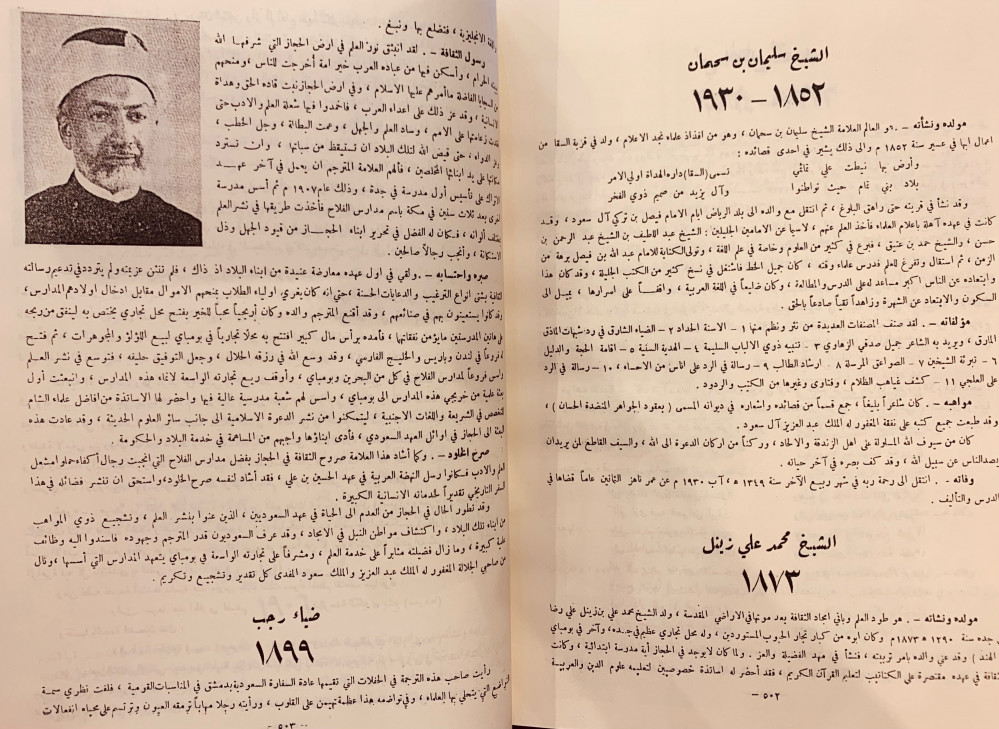 الشيخ سليمان بن سحمان
١٨٥٢ – ١٩٣٠
مولده ونشأته – . هو العالم العلامة الشيخ سليمان بن سحمان ، وهو من افذاذ علماء نجد الاعلام ، ولد في قرية السقا من
اعمال ابها في عسير سنة ١٨٥٢ م والى ذلك يشير في احدى قصائده :
وأرض بها نيطت علي تمائمي تسمى (السقا) دار الهداة اولي الامر
بلاد بني تمام حيث تواطنوا وآل يزيد من صميم ذوي الفخر
وقد نشأ في قريته حتى راهق البلوغ ، ثم انتقل مع والده الى بلد الرياض ايام الامام فيصل بن تركي آل سعود ، وقد
كانت في عهده آهلة باعلام العلماء فأخذ العلم عنهم ، لاسيما عن الامامين الجليلين : الشيخ عبد اللطيف بن الشيخ عبد الرحمن بن
حسن ، والشيخ حمد بن عتيق ، فبرع في كثير من العلوم وخاصة في علم اللغة ، وتولى الكتابة للامام عبد الله بن فيصل برهة من
الزمن ، ثم استقال وتفرغ للعلم فدرس علماء وقته ، كان جميل الخط فاشتغل في نسخ كثير من الكتب الجليلة ، وقد كان هذا
وابتعاده عن الناس اكبر مساعد له على الدرس والمطالعة ، وكان ضليعاً في اللغة العربية ، واقفاً على اسرارها ، يميل الى
السكون والابتعاد عن الشهرة وزاهداً تقياً صادعاً بالحق .
مؤلفاته – . لقد صنف المصنفات العديدة من نثر ونظم منها ١ – الاسنة الحداد ٢ – الضياء الشارق في رد شبهات الماذق
المارق ، ويريد به الشاعر جميل صدقي الزهاوي ٣ – تنبيه ذوي الالباب السليمة ٤ – الهدية السنية ٥ – اقامة الحجة والدليل
٦ – تبرئة الشيخين ٧ – الصواعق المرسلة ٨ – ارشاد الطالب ٩ – رسالة في الرد على اناس من الاحساء ، ١٠ – رسالة في الرد
على العلجي ١١ – كشف غياهب الظلام ، وفتاوى وغيرها من الكتيب والردود .
مواهبه – . كان شاعراً بليغاً ، جمع قسماً من قصائده واشعاره في ديوانه المسمى ( بعقود الجواهر المنضدة الحسان ) ،
وقد طبعت جميع كتبه على نفقة المغفور له الملك عبد العزيز آل سعود .
كان من سيوف الله المسلولة على اهل الزندقة والالحاد ، وركناً من اركان الدعوة الى الله ، والسيف القاطع لمن يريدان
يصد الناس عن سبيل الله ، وقد كف بصره في آخر حياته .
وفاته – . انتقل الى رحمة ربه في شهر ربيع الآخر سنة ١٣٤٩ هـ ، آب ١٩٣٠ م عن عمر ناهز الثمانين عاماً قضاها في
الدرس والتأليف .
الشيخ محمد علي زينل
١٨٧٣
مولده ونشأته – . هو طود العلم وباني امجاد الثقافة بعد موتها في الاراضي المقدسة ، ولد الشيخ محمد علي بن زينل علي رضا
جده سنة ١٢٩٠ هـ ١٨٧٣ م وكان ابوه من كبار تجار الحبوب المستوردين ، وله محل تجاري عظيم في جده ، وآخر في بومباي
( الهند ) وقد عني والده بامر تربيته ، فنشأ في مهد الفضيلة والعز . ولما كان لا يوجد في الحجاز أية مدرسة ابتدائية ، وكانت
الثقافة في عهده مقتصرة على الكتاتيب لتعليم القرآن الكريم ، فقد احضر له اساتذة خصوصيين لتعليمه علوم الدين والعربية
– ٥٠٢ –
واللغة الانجليزية ، فتضلع بها ونبغ .
رسول الثقافة – . لقد انبثق نور العلم في ارض الحجاز التي شرفها الله
ببيته الحرام ، وأسكن فيها من عباده العرب خير امة أخرجت للناس ، ومنحهم
من السجايا الفاضلة ما أمرهم عليها الاسلام ، وفي ارض الحجاز نبت قادة الحق وهداة
الانسانية ، وقد عز ذلك على اعداء العرب ، فاخمدوا فيها شعلة العلم والادب حتى
فقدت زعامتها على الامم ، وساد العلم والجهل ، وعمت البطالة ، وجل الخطب ،
وعز الدواء ، حتى قيض الله لتلك البلاد ان تستيقظ من سباتها ، وان تسترد
مكانتها على يد ابنائها المخلصين ، فألهم العلامة المترجم ان يعمل في آخر عهد
الاتراك على تأسيس أول مدرسة في جدة ، وذلك عام ١٩٠٧ م ثم أسس مدرسة
اخرى بعد ثلاث سنين في مكة باسم مدارس الفلاح فأخذت طريقها في نشر العلم
بمختلف ألوانه ، فكان له الفضل في تحرير ابناء الحجاز من قيود الجهل وذل
الاستكانة ، وأنجب رجالاً صالحين .
صبره واحتسابه – . ولقي في اول عهده معارضة عنيدة من ابناء البلاد اذ ذاك ، فلم تنثن عزيمته ولم يتردد في تدعيم رسالته
الثقافية بشتى انواع الترغيب والدعايات الحسنة ، حتى انه كان يغري اولياء الطلاب بمنحهم الاموال مقابل ادخال اولادهم المدارس ،
وقد كانوا يستعينون بهم في صنائعهم ، وقد أقنع المترجم والده وكان أريحياً محباً للخير بفتح محل تجاري يختص به لينفق من ريحه
في هاتين المدرستين ما يؤمن نفقاتها ، فأمده برأس مال كبير افتتح به محلاً تجارياً في بومباي لبيع اللؤلؤ والمجوهرات ، ثم فتح
له فروعاً في لندن وباريس والخليج الفارسي ، وقد وسع الله في رزقه الحلال ، وجعل التوفيق حليفه ، فتوسع في نشر العلم
وأسس فروعاً لمدارس الفلاح في كل من البحرين وبومباي ، وأوقف ريع تجارته الواسعة لانماء هذه المدارس ، وانبعثت أول
بعثة علمية من خريجي هذه المدارس الى بومباي ، واسس لهم شعبة مدرسية عالية فيها واحضر لها الاساتذة من افاضل علماء الشام
للتخصص في الشريعة واللغات الاجنبية ، ليتمكنوا من نشر الدعوة الاسلامية الى جانب سائر العلوم الحديثة ، وقد عادت هذه
البعثة الى الحجاز في اوائل العهد السعودي ، فأدى ابناؤها واجبهم من المساهمة في خدمة البلاد والحكومة .
صرح الخلود – . وكما أشاد هذا العلامة صروح الثقافة في الحجاز بفضل مدارس الفلاح التي انجبت رجال أكفاء حملوا مشعل
العلم والادب فكانوا رسل النهضة العربية في عهد الحسين بن علي ، فقد أشاد لنفسه صرح الخلود ، واستحق ان تنشر فضائله في هذا
السفر التاريخي تقديراً لخدماته الانسانية الكبيرة .
وقد تطور الحال في الحجاز من العدم الى الحياة في عهد السعوديين ، الذين عنوا بنشر العلم ، وتشجيع ذوي المواهب
من ابناء تلك البلاد ، واكتشاف مواطن النبل في الامجاد ، وقد عرف السعوديون قدر المترجم وجهوده فاسندوا اليه وظائف
علمية كبيرة ، وما زال فضيلته مثابراً على خدمة العلم ، ومشرفاً على تجارته الواسعة في بومباي يتعهد المدارس التي أسسها ، ونال
من صاحبي الجلالة المغفور له الملك عبد العزيز والملك سعود المفدى كل تقدير وتشجيع وتكريم .
ضياء رجب
١٨٩٩
رأيت صاحب هذه الترجمة في الحفلات التي تقيمها عادة السفارة السعودية بدمشق في المناسبات القومية ، فلفت نظري سمة
التواضع التي يتحلى بها العلماء ، وفي تواضعه هذا عظمة تهيمن على القلوب ، ورأيته رجلاً مهاباً ترمقه العيون وترتسم على محياه انفعالات
– ٥٠٣ –